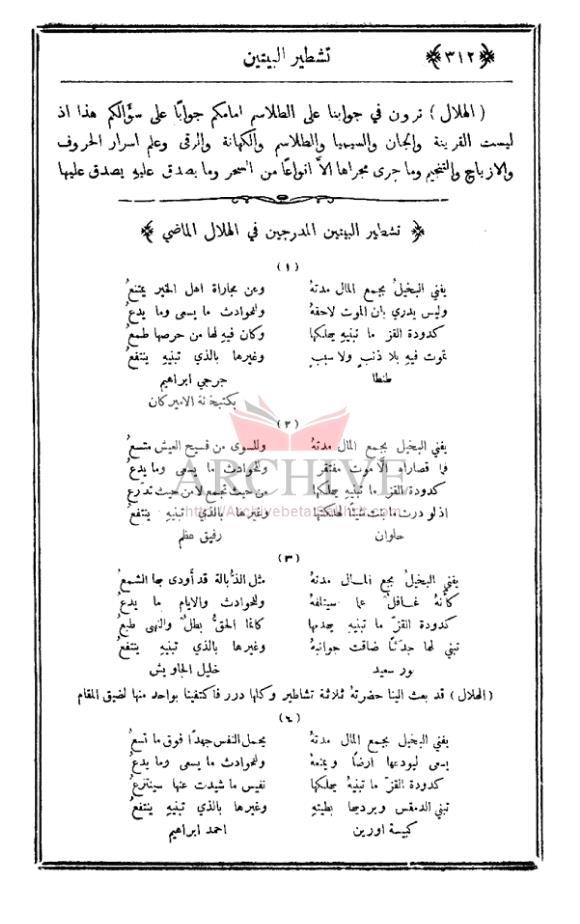 ﴿٣١٢﴾ تشطير البيتين
( الهلال ) ترون في جوابنا على الطلاسم امامكم جوابًا على سؤالكم هذا اذ
ليست القرينة والجان والسيميا والطلاسم والكهانة والرقى وعلم اسرار الحروف
والازياج والتنجيم وما جرى مجراها الاَّ انواعًا من السحر وما يصدق عليهِ يصدق عليها
﴿ تشطير البيتين المدرجين في الهلال الماضي ﴾
(١)
يفني البخيلُ بجمع المال مدتهُ وعن مجاراة اهل الخير يمتنعُ
وليس يدري بان الموت لاحقهُ وللحوادث ما يسعى وما يدعُ
كدودة القز ما تبنيهِ يهلكها وكان فيهِ لها من حرصها طمعُ
تموت فيهِ بلا ذنبٍ ولا سببٍ وغيرها بالذي تبنيهِ ينتفعُ
طنطا جرجي ابراهيم
بكتبخانة الاميركان
(٢)
يفني البخيل بجمع المال مدتهُ وللسوى من فسيح العيش متسعُ
فما قصاراه الا موت مفتقر وللحوادث ما يسعى وما يدعُ
كدودة القز ما تبنيهِ يهلكها من حيث تجمع لا من حيث تدّرعُ
اذ لو درت ما بنت وغيرها بالذي تبنيهِ ينتفعُ
حلوان رفيق عظم
ARCHIVE
(٣)
يفني البخيل بجمع المال مدتهُ مثل الذُّبالة قد أودى بها الشمعُ
كأنَّهُ غافلٌ عما سيتلفهُ وللحوادث والايام ما يدعُ
كدودة القزّ ما تبنيهِ يهدمها كالحقُّ والنهى طبعُ
تبني لها جدثًا ضاقت جوانبهُ وغيرها بالذي تبنيهِ ينتفعُ
بور سعيد خليل الجاويش
( الهلال ) قد بعث الينا حضرتهُ ثلاثة تشاطير وكلها درر فاكتفينا بواحد منها لضيق المقام
(٤)
يفني البخيل بجمع المال مدتهُ يحمل النفس جهدًا فوق ما تسعُ
يسعى ليودعها ارضًا ويمنعهُ وللحوادث ما يسعى وما يدعُ
كدودة القزّ ما تبنيهِ يهلكها نفيس ما شيدت عنها سينتزعُ
تبني الدمقس ويرديها بطيتهِ وغيرها بالذي تبنيهِ ينتفعُ
كنيسة اورين احمد ابراهيم